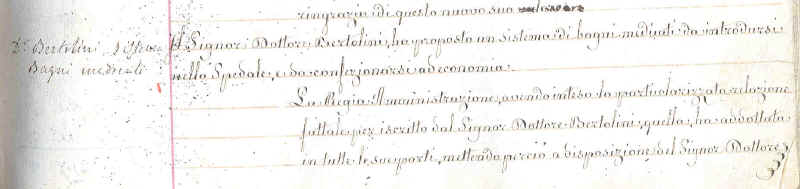 ringrazia di questo nuovo suo
Dr. Bertolini sistema
Bagni medicati
Il Signor Dottore Bertolini, ha proposto un sistema di bagni medicati da introdursi
nello Spedale, e da confezionarsi ad economia.
La Regia Amministrazione, avendo intesa la particolarizzata relazione
fattale per iscritto dal Signor Dottore Bertolini, quella, ha addottata
in tutte le sue parti, mettendo perciò a disposizione del Signor Dottore